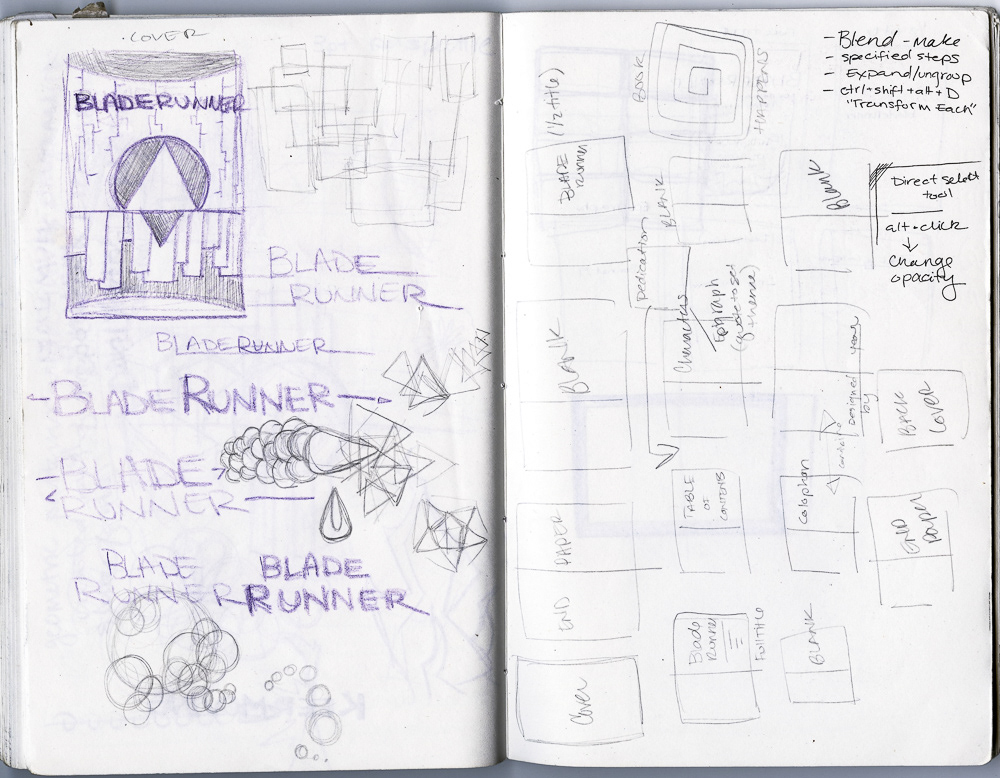 COVER
BLADERUNNER
BLADE
RUNNER
BLADERUNNER
BLADE RUNNER
BLADE
RUNNER
BLADE
RUNNER
BLADE
RUNNER
- Blend - make
- specified steps
- Expand/ungroup
- ctrl+shift+alt+D
"Transform Each"
Direct select
tool
alt+click
↓
change
opacity
Cover
END PAPER
BLANK
BLADE
Runner
(1/2 title)
Blade
Runner
Full title
TABLE
OF
CONTENTS
Dedication
Characters
Epigraph
(quote to set
theme)
BLANK
BLANK
BLANK
Colophon
Designed
by
Blank
END
PAPER
BACK
COVER